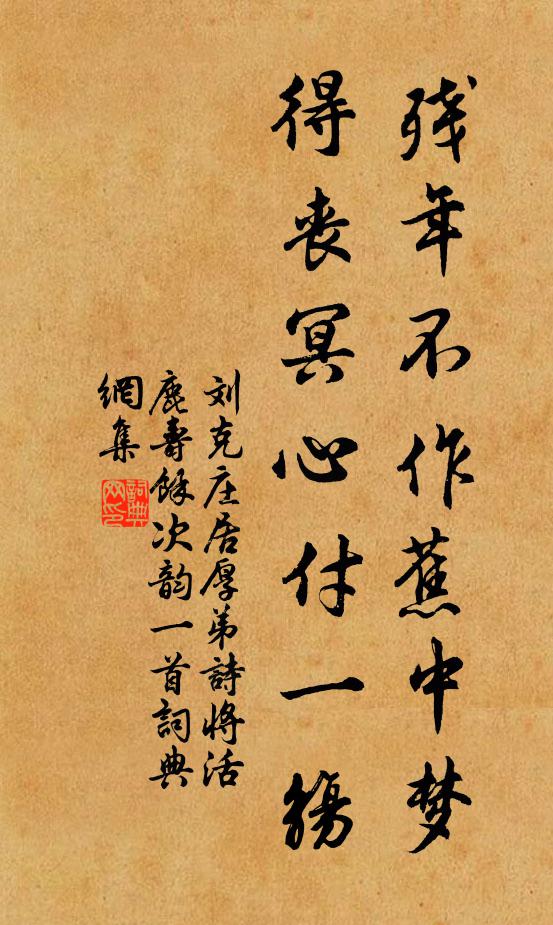 残年不作蕉中梦
得丧冥心付一觞
刘克庄居厚弟詩将活
鹿壽馀次韵一首詞典
網集
詞典
网印